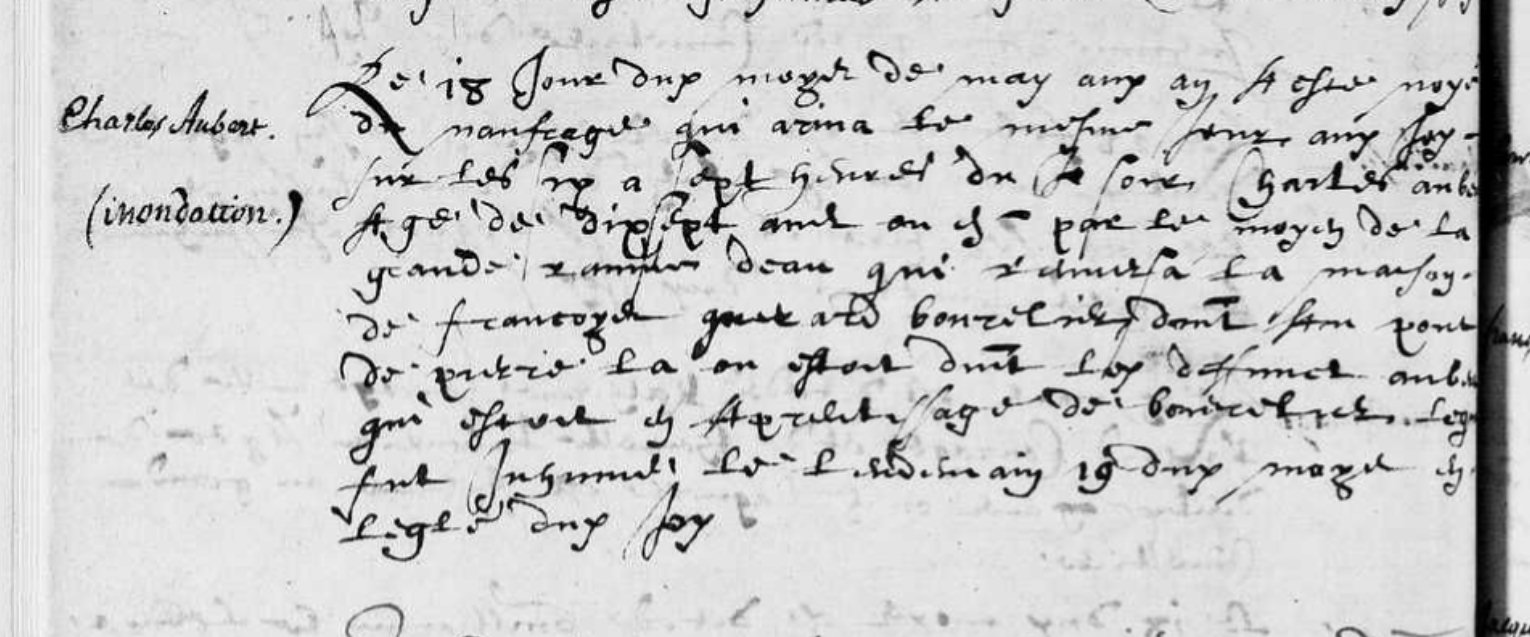 Charles Aubert.
(inondation.)
Le 18 Jour dux moyes de may aux an A este noye
du naufrage qui ariva le mesme Jour aux
sur les six a sept heures du soir Charles aube
Age de dixsept ans ou en par le moyen de la
grande ravine deau qui renversa la maison
de francoyes bourelier dont pont
de pierre la ou estoit dont deffunct aube
qui estoit en Aprentissage de bourelier
fut Inhumé le lendemain 19 dux moyes en
leglé dux